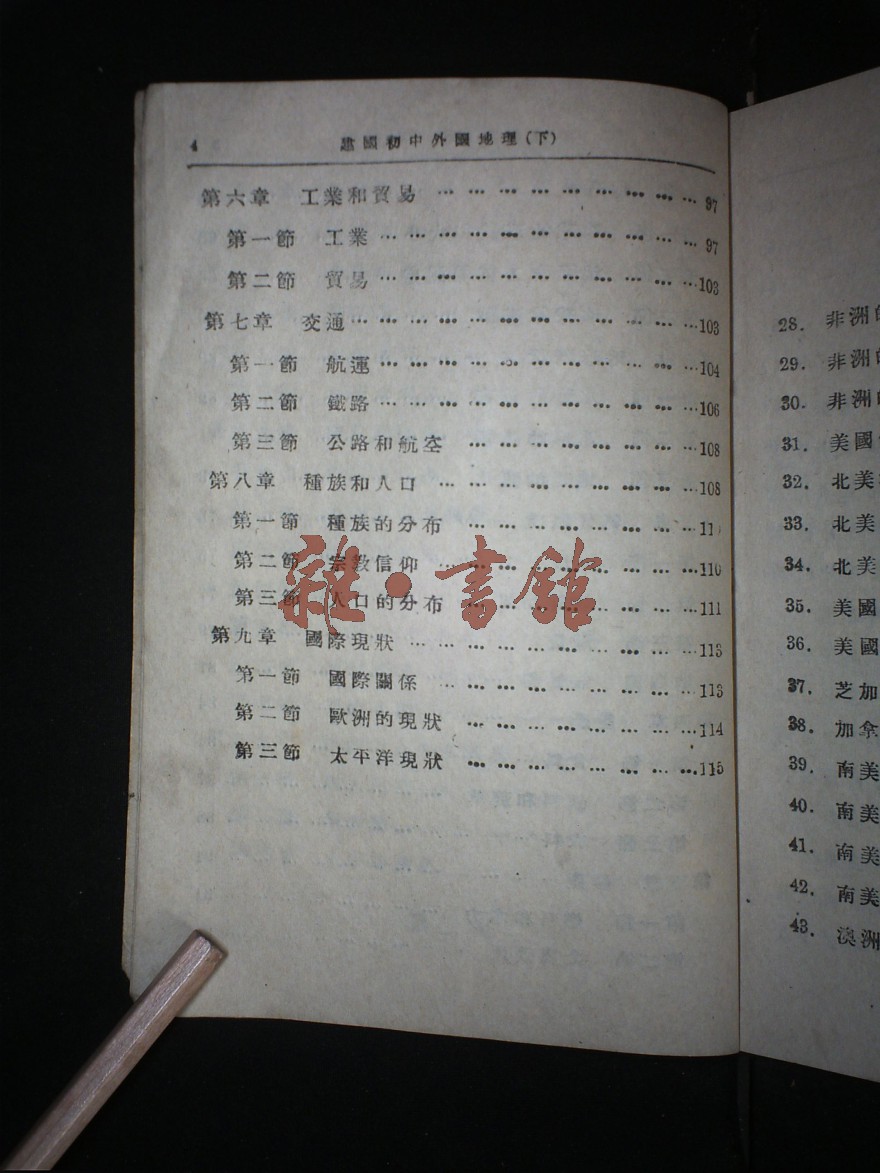 4 建國初中外國地理(下)
第六章 工業和貿易 … … … … … … … … … 97
第一節 工業 … … … … … … … … … … … 97
第二節 貿易 … … … … … … … … … … …103
第七章 交通 … … … … … … … … … … … …103
第一節 航運 … … … … … … … … … … …104
第二節 鐵路 … … … … … … … … … … …106
第三節 公路和航空 … … … … … … … …108
第八章 種族和人口 … … … … … … … … …108
第一節 種族的分布 … … … … … … … … 11
第二節 宗教信仰 … … … … … … … … …110
第三節 人口的分布 … … … … … … … …111
第九章 國際現狀 … … … … … … … … … …113
第一節 國際關係 … … … … … … … … …113
第二節 歐洲的現狀 … … … … … … … …114
第三節 太平洋現狀 … … … … … … … …115
雜·書館
28. 非洲的
29. 非洲的
30. 非洲的
31. 美國
32. 北美
33. 北美
34. 北美
35. 美國
36. 美國
37. 芝加
38. 加拿
39. 南美
40. 南美
41. 南美
42. 南美
43. 澳洲